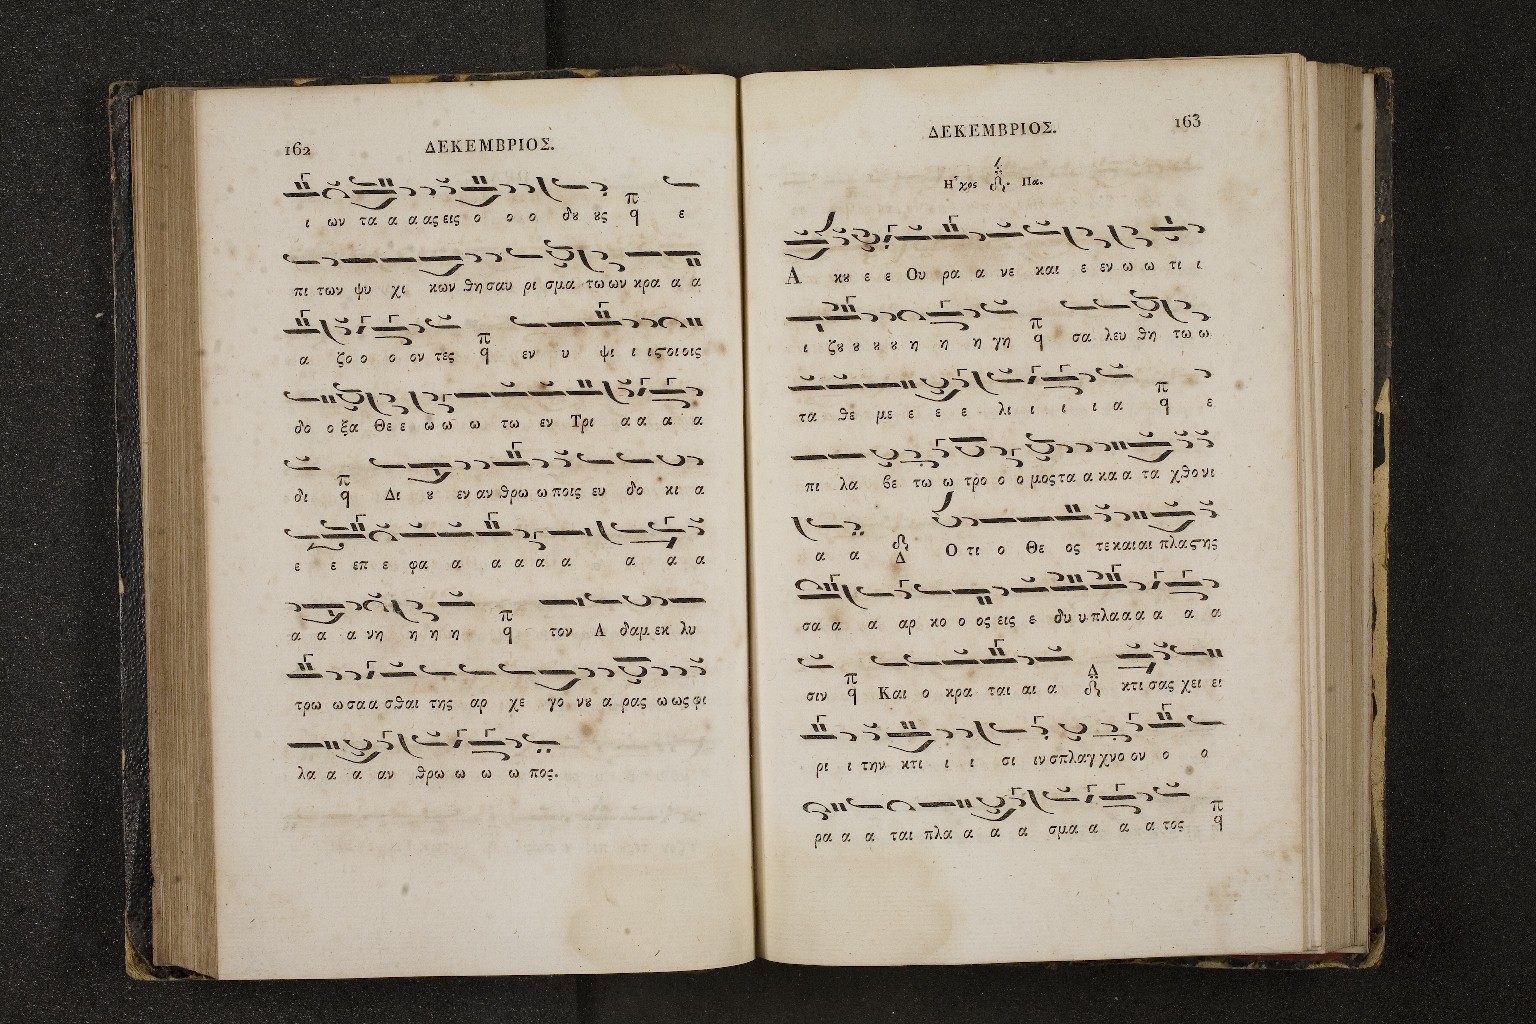 162
ΔΕΚΕΜΒΡΙΟΣ.
ι ων τα α α ας εις ο ο ο δȣ ȣς ε
πι των ψυ χι κων θη σαυ ρι σμα τω ων κρα α α
α ζο ο ο ον τες εν υ ψι ι ις οι οις
δο ο ξα Θε ε ω ω ω τω εν Τρι α α α α
δι Δι ȣ εν αν θρω ω ποις ευ δο κι α
ε ε επ ε φα α α α α α α α α
α α α νη η η η τον Α δαμ εκ λυ
τρω ω σα α σθαι της αρ χε γο νȣ α ρας ω ως φι
λα α α αν θρω ω ω ω πος.
ΔΕΚΕΜΒΡΙΟΣ.
163
Ἦχος Πα.
Α κȣ ε ε Ου ρα α νε και ε εν ω ω τι ι
ι ζȣ ȣ ȣ ȣ η η η γη σα λευ θη τω ω
τα θε με ε ε ε λι ι ι ι α ε
πι λα βε τω ω τρο ο ο μος τα α κα α τα χθο νι
α α Δ Ο τι ο Θε ος τε και αι πλα στης
σα α α αρ κο ο ος εις ε δυ υ πλα α α α α α
σιν Και ο κρα ται αι α κτι σας χει ει
ρι ι την κτι ι ι σι ιν σπλαγ χνο ον ο ο
ρα α α ται πλα α α α σμα α α α τος